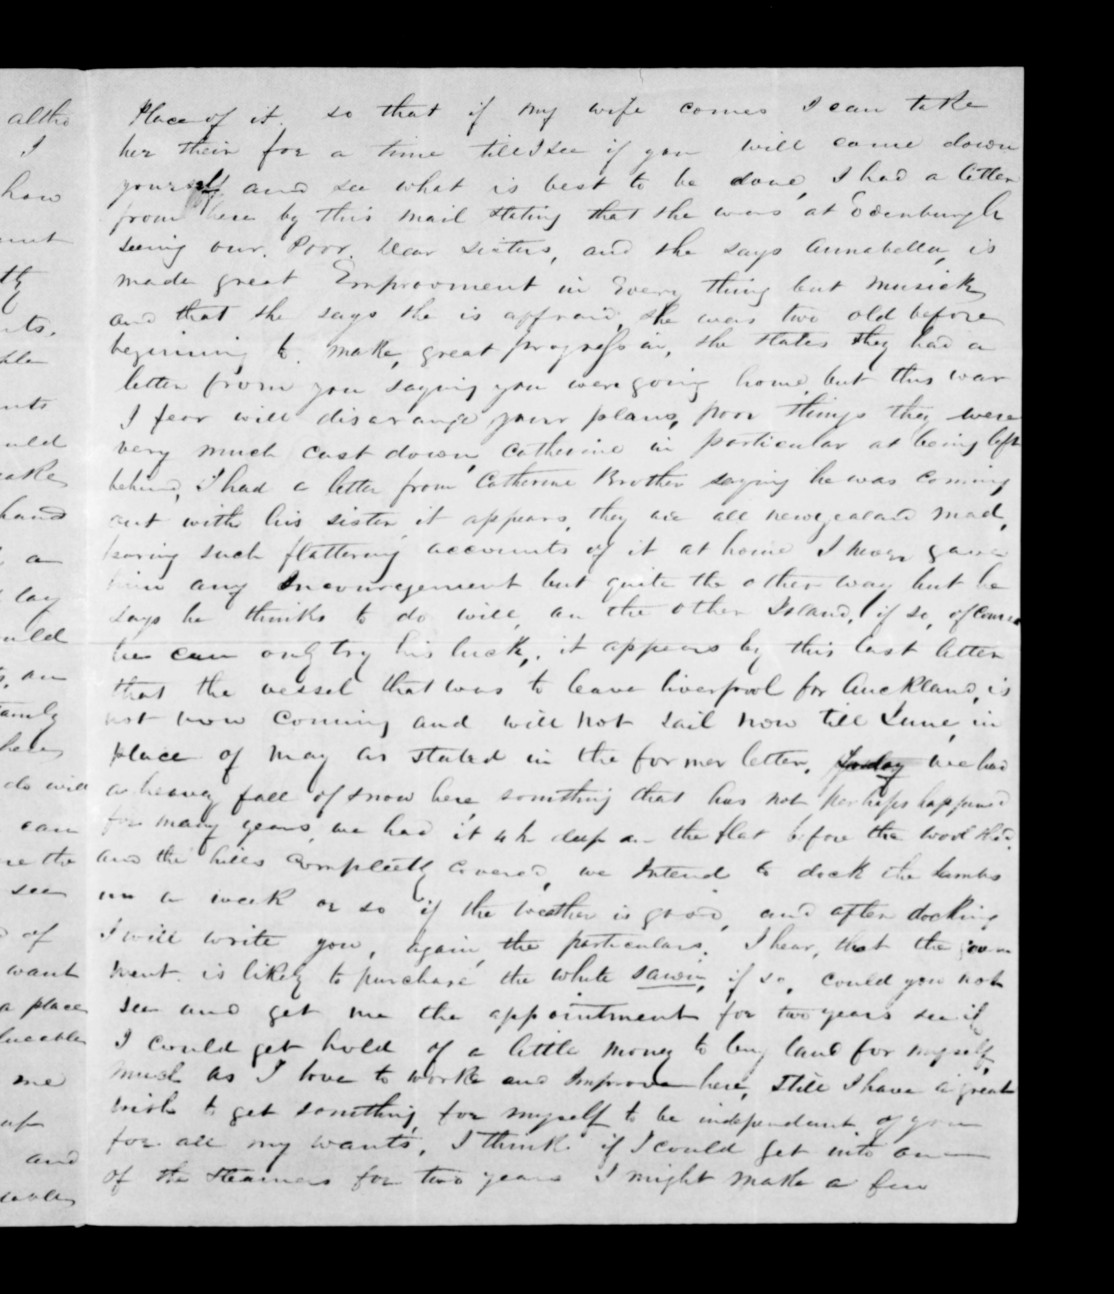 Place of it. so that if my wife comes I can take
her their for a time till I see if you will come down
yourself and see what is best to be done, I had a letter
from here by this mail stating that she was at Edenburgh
seeing our. Poor. Dear sisters, and she says Annabella, is
made great Emproovment in Every thing but musick
and that she says she is affraid, she was two old before
beginning to. make, great progress in, she states they had a
letter from you saying you were going home, but this war
I fear will disarange your plans, poor things they were
very much cast down, Catherine in particular at being left
behind, I had a letter from Catherine Brother saying he was coming
out with his sister it appears, they are all newzealand mad,
having such flattering accounts of it at home I never gave
him any Incouragement but quite the other way but he
says he thinks to do will, on the other Island, if so, of course
he can only try his luck, it appears by this last letter
that the vessel that was to leave liverpool for Auckland, is
not now coming and will not sail now till June, in
place of May as stated in the former letter, today we had
a heavy fall of snow here somthing that has not perhaps happened
for many years, we had it 4 in deep on the flat before the wool shed,
and the hills completly covered, we Intend to dock the lambs
in a week or so if the weather is good, and after docking
I will write you, again, the particulars. I hear, that the govern
ment is likely to purchase the white swan, if so, could you not
see and get me the appointment for two years see if
I could get hold of a little money to buy land for myself,
much as I love to work and Improve here, still I have a great
wish to get somthing for myself to be independant of you
for all my wants, I think if I could get into one
of the steamers for two years I might make a few
altho
I
how
ment
nts.
ould
make
hand
an
lay
ould
family
do will
can
re the
see
of
want
a place
me
up
and